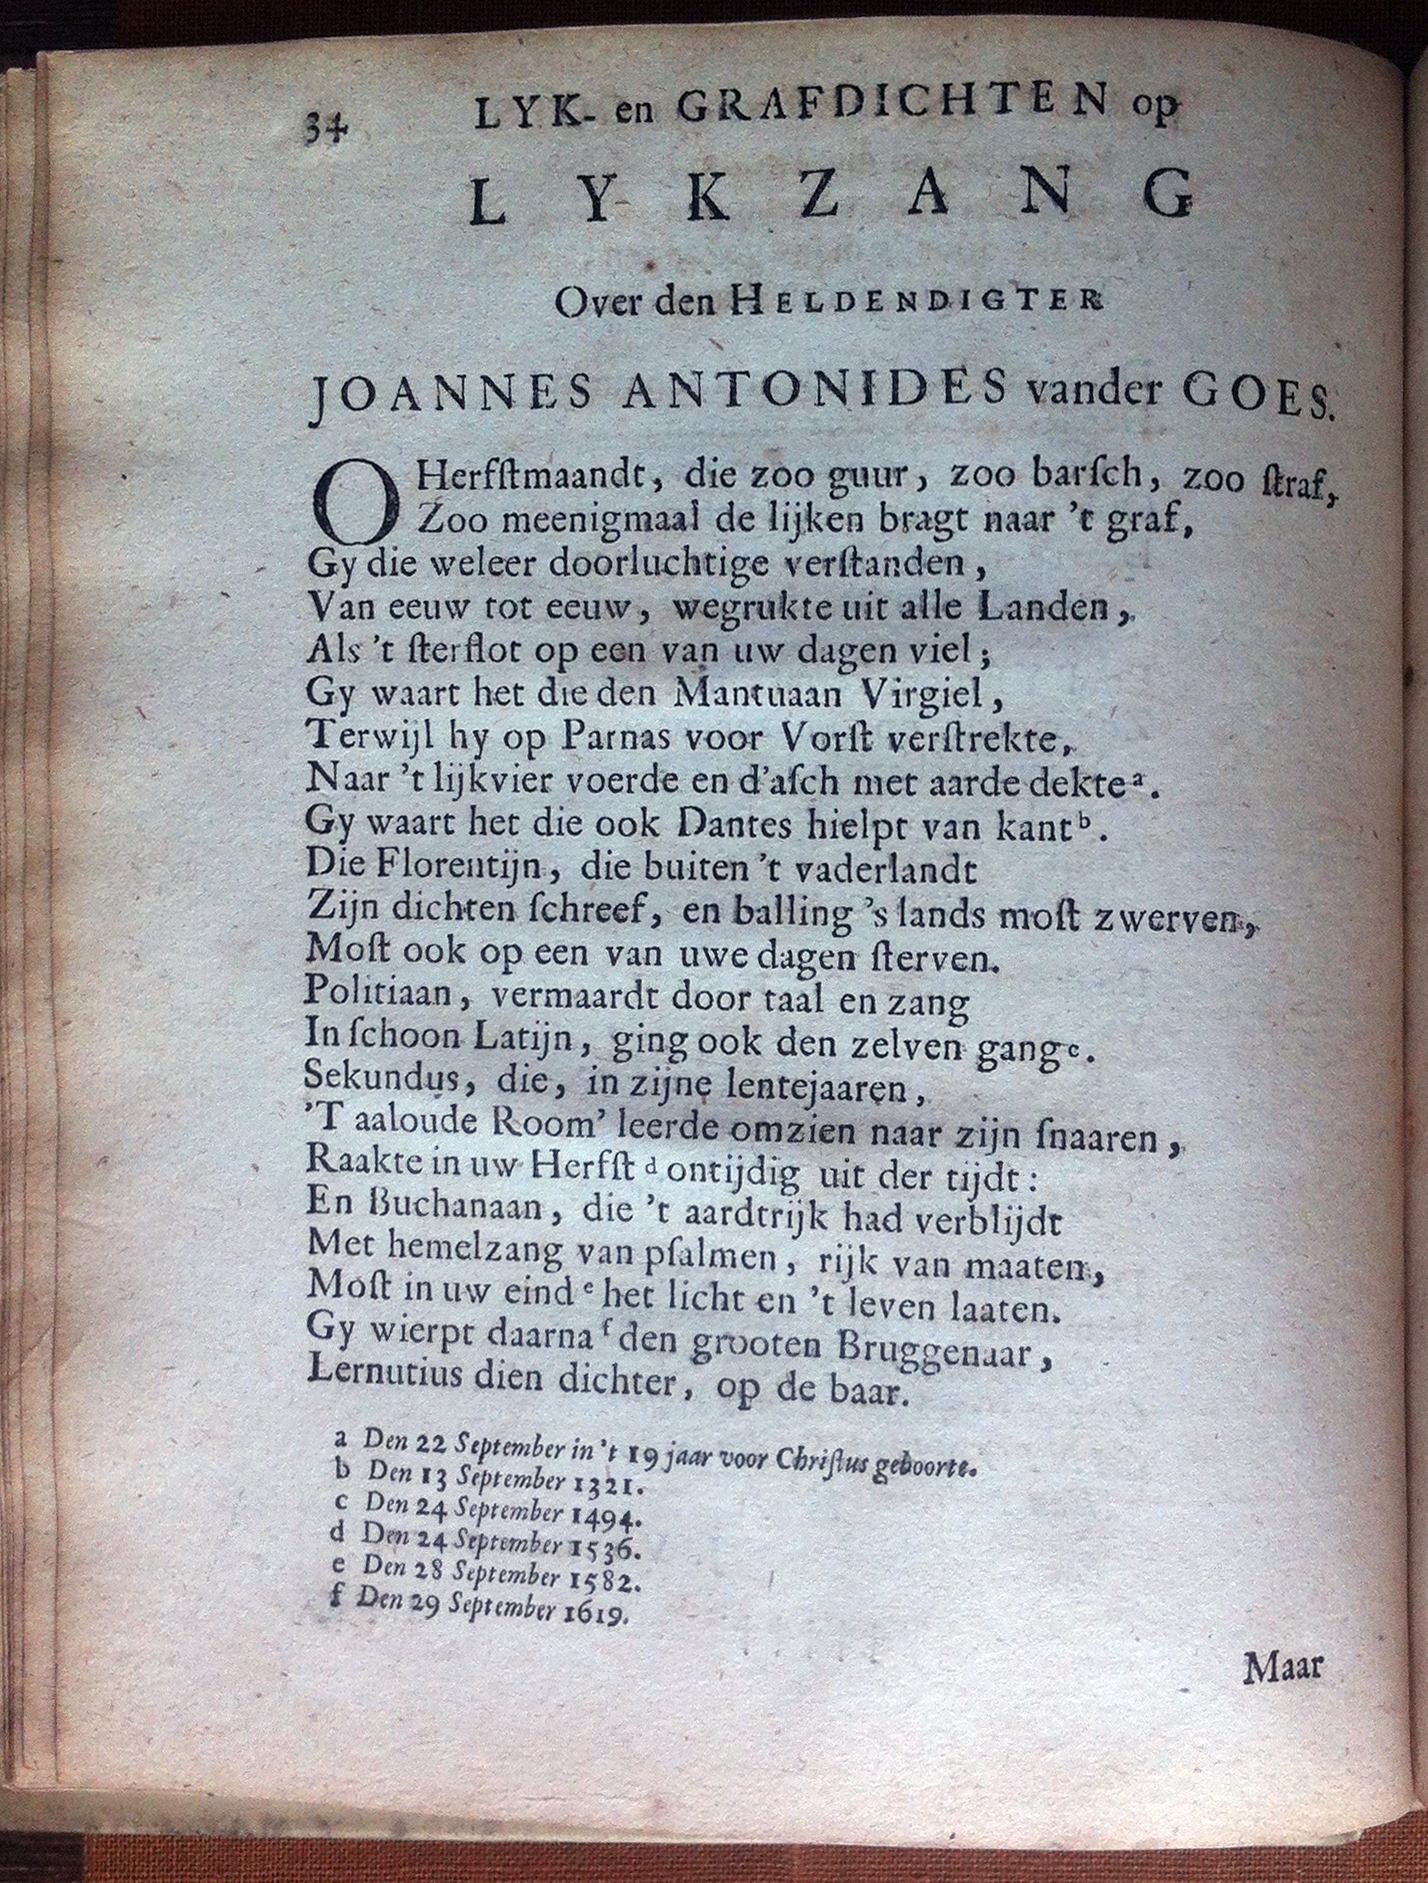 34 LYK- en GRAFDICHTEN op
LYKZANG
Over den HELDENDIGTER
JOANNES ANTONIDES vander GOES.
O Herfſtmaandt, die zoo guur, zoo barſch, zoo ſtraf,
Zoo meenigmaal de lijken bragt naar 't graf,
Gy die weleer doorluchtige verſtanden,
Van eeuw tot eeuw, wegrukte uit alle Landen,
Als 't ſterflot op een van uw dagen viel;
Gy waart het die den Mantuaan Virgiel,
Terwijl hy op Parnas voor Vorſt verſtrekte,
Naar 't lijkvier voerde en d'aſch met aarde dekte a.
Gy waart het die ook Dantes hielpt van kant b.
Die Florentijn, die buiten 't vaderlandt
Zijn dichten ſchreef, en balling 's lands moſt zwerven,
Moſt ook op een van uwe dagen ſterven.
Politiaan, vermaardt door taal en zang
In ſchoon Latijn, ging ook den zelven gang c.
Sekundus, die, in zijne lentejaaren,
'T aaloude Room' leerde omzien naar zijn ſnaaren,
Raakte in uw Herfſt d ontijdig uit der tijdt:
En Buchanaan, die 't aardtrijk had verblijdt
Met hemelzang van pſalmen, rijk van maaten,
Moſt in uw eind e het licht en 't leven laaten.
Gy wierpt daarna f den grooten Bruggenaar,
Lernutius dien dichter, op de baar.
a Den 22 September in 't 19 jaar voor Chriſtus geboorte.
b Den 13 September 1321.
c Den 24 September 1494.
d Den 24 September 1536.
e Den 28 September 1582.
f Den 29 September 1619.
Maar